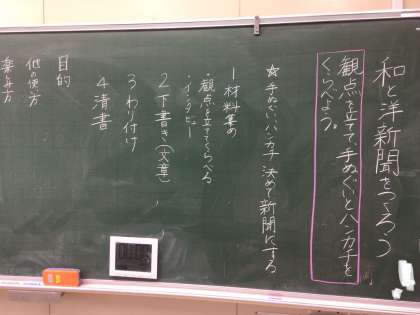 和と洋新聞をつくろう
観点を立てて、手ぬぐいとハンカチを
くらべよう。
☆手ぬぐい、ハンカチ 決めて新聞にする
1 材料集め
・観点を立てくらべる
・インタビュー
2 下書き(文章)
3 わり付け
4 清書
目的
他の使い方
楽しみ方